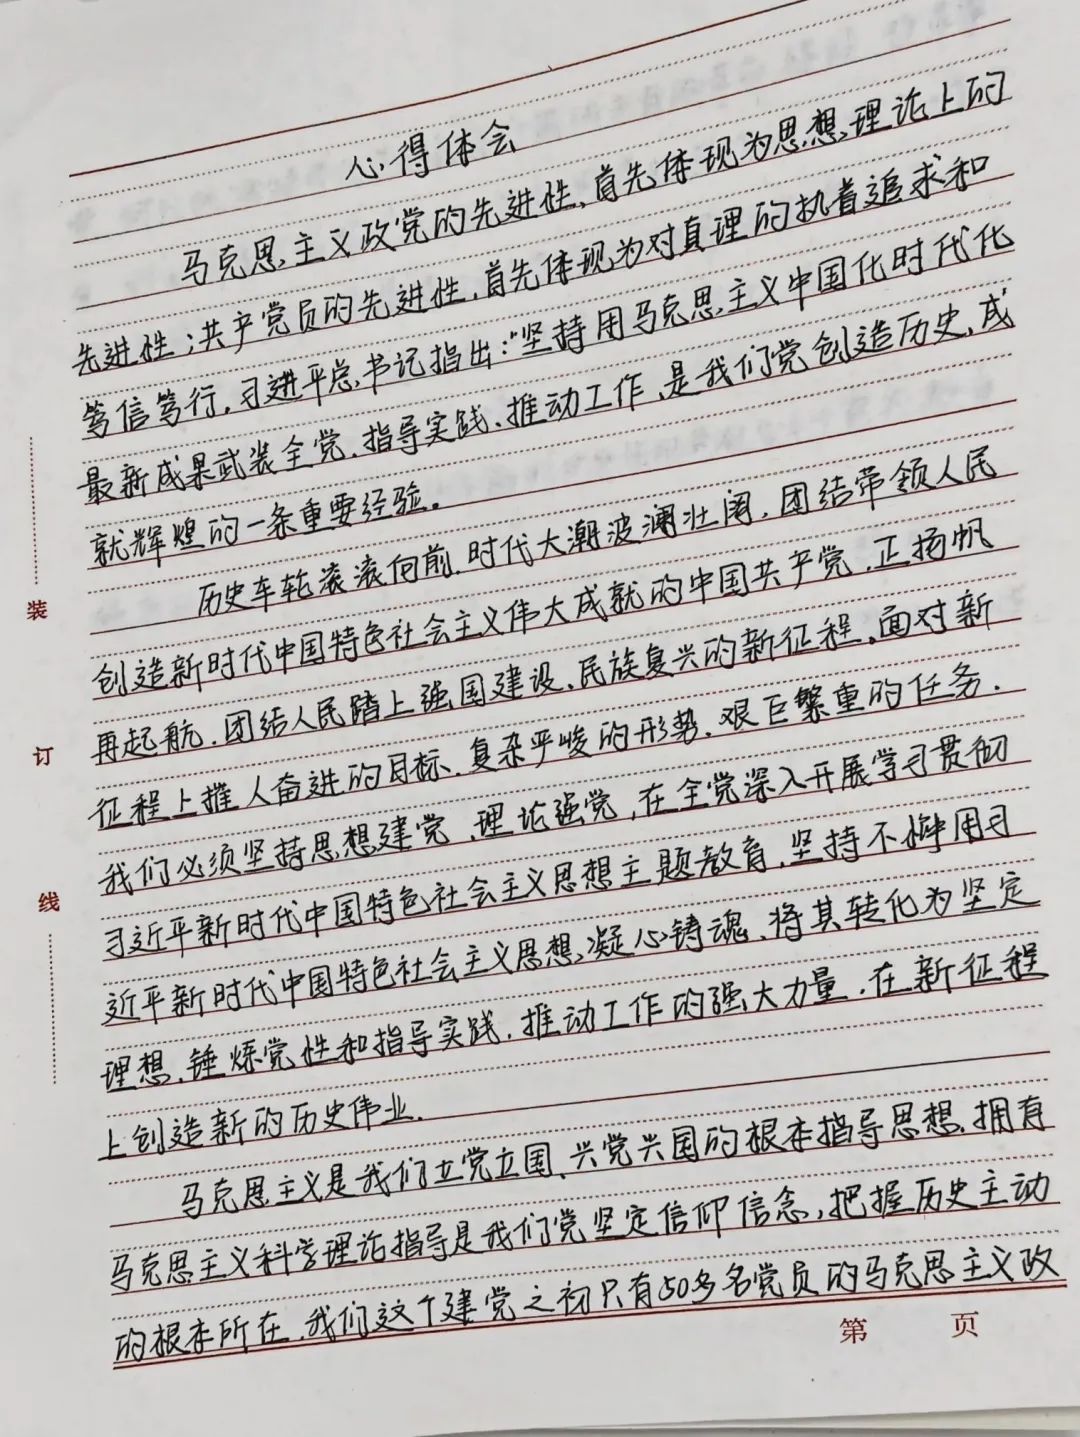 心得体会
马克思主义政党的先进性，首先体现为思想理论上的
先进性；共产党员的先进性，首先体现为对真理的执着追求和
笃信笃行，习进平总书记指出："坚持用马克思主义中国化时代化
最新成果武装全党、指导实践、推动工作，是我们党创造历史，成
就辉煌的一条重要经验。
历史车轮滚滚向前，时代大潮波澜壮阔，团结带领人民
创造新时代中国特色社会主义伟大成就的中国共产党，正扬帆
再起航，团结人民踏上强国建设、民族复兴的新征程。面对新
征程上摧人奋进的目标、复杂严峻的形势、艰巨繁重的任务，
我们必须坚持思想建党、理论强党，在全党深入开展学习贯彻
习近平新时代中国特色社会主义思想主题教育，坚持不懈用习
近平新时代中国特色社会主义思想凝心铸魂、将其转化为坚定
理想、锤炼党性和指导实践、推动工作的强大力量，在新征程
上创造新的历史伟业。
马克思主义是我们立党立国、兴党兴国的根本指导思想，拥有
马克思主义科学理论指导是我们党坚定信仰信念，把握历史主动
的根本所在，我们这个建党之初只有50多名党员的马克思主义政
装
订
线
第 页